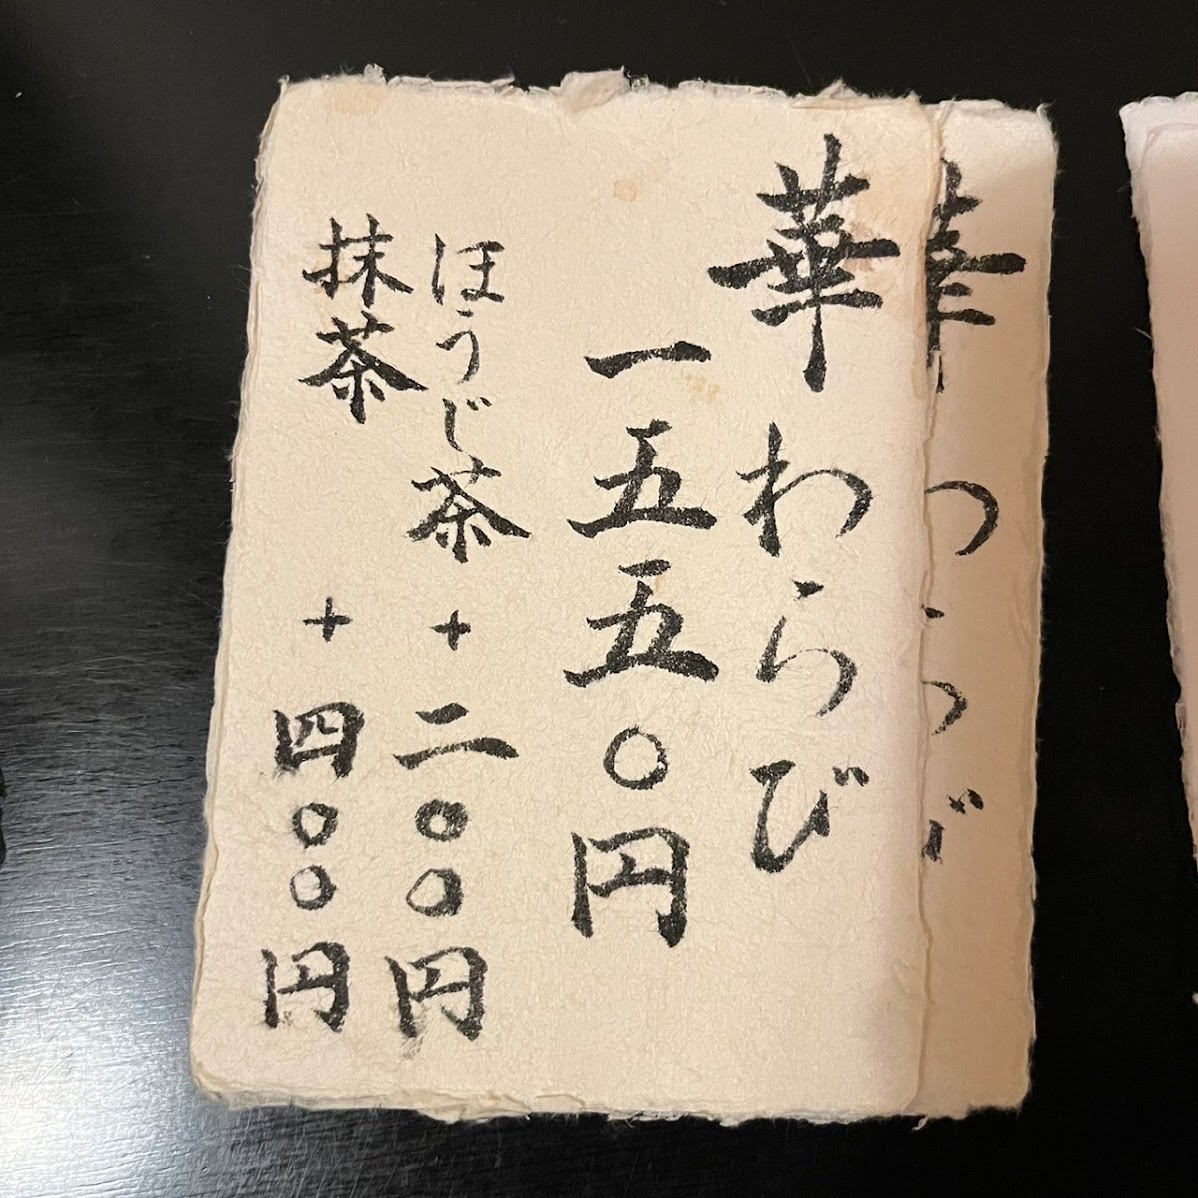 華わらび
一五五〇円
ほうじ茶 +二〇〇円
抹茶 +四〇〇円